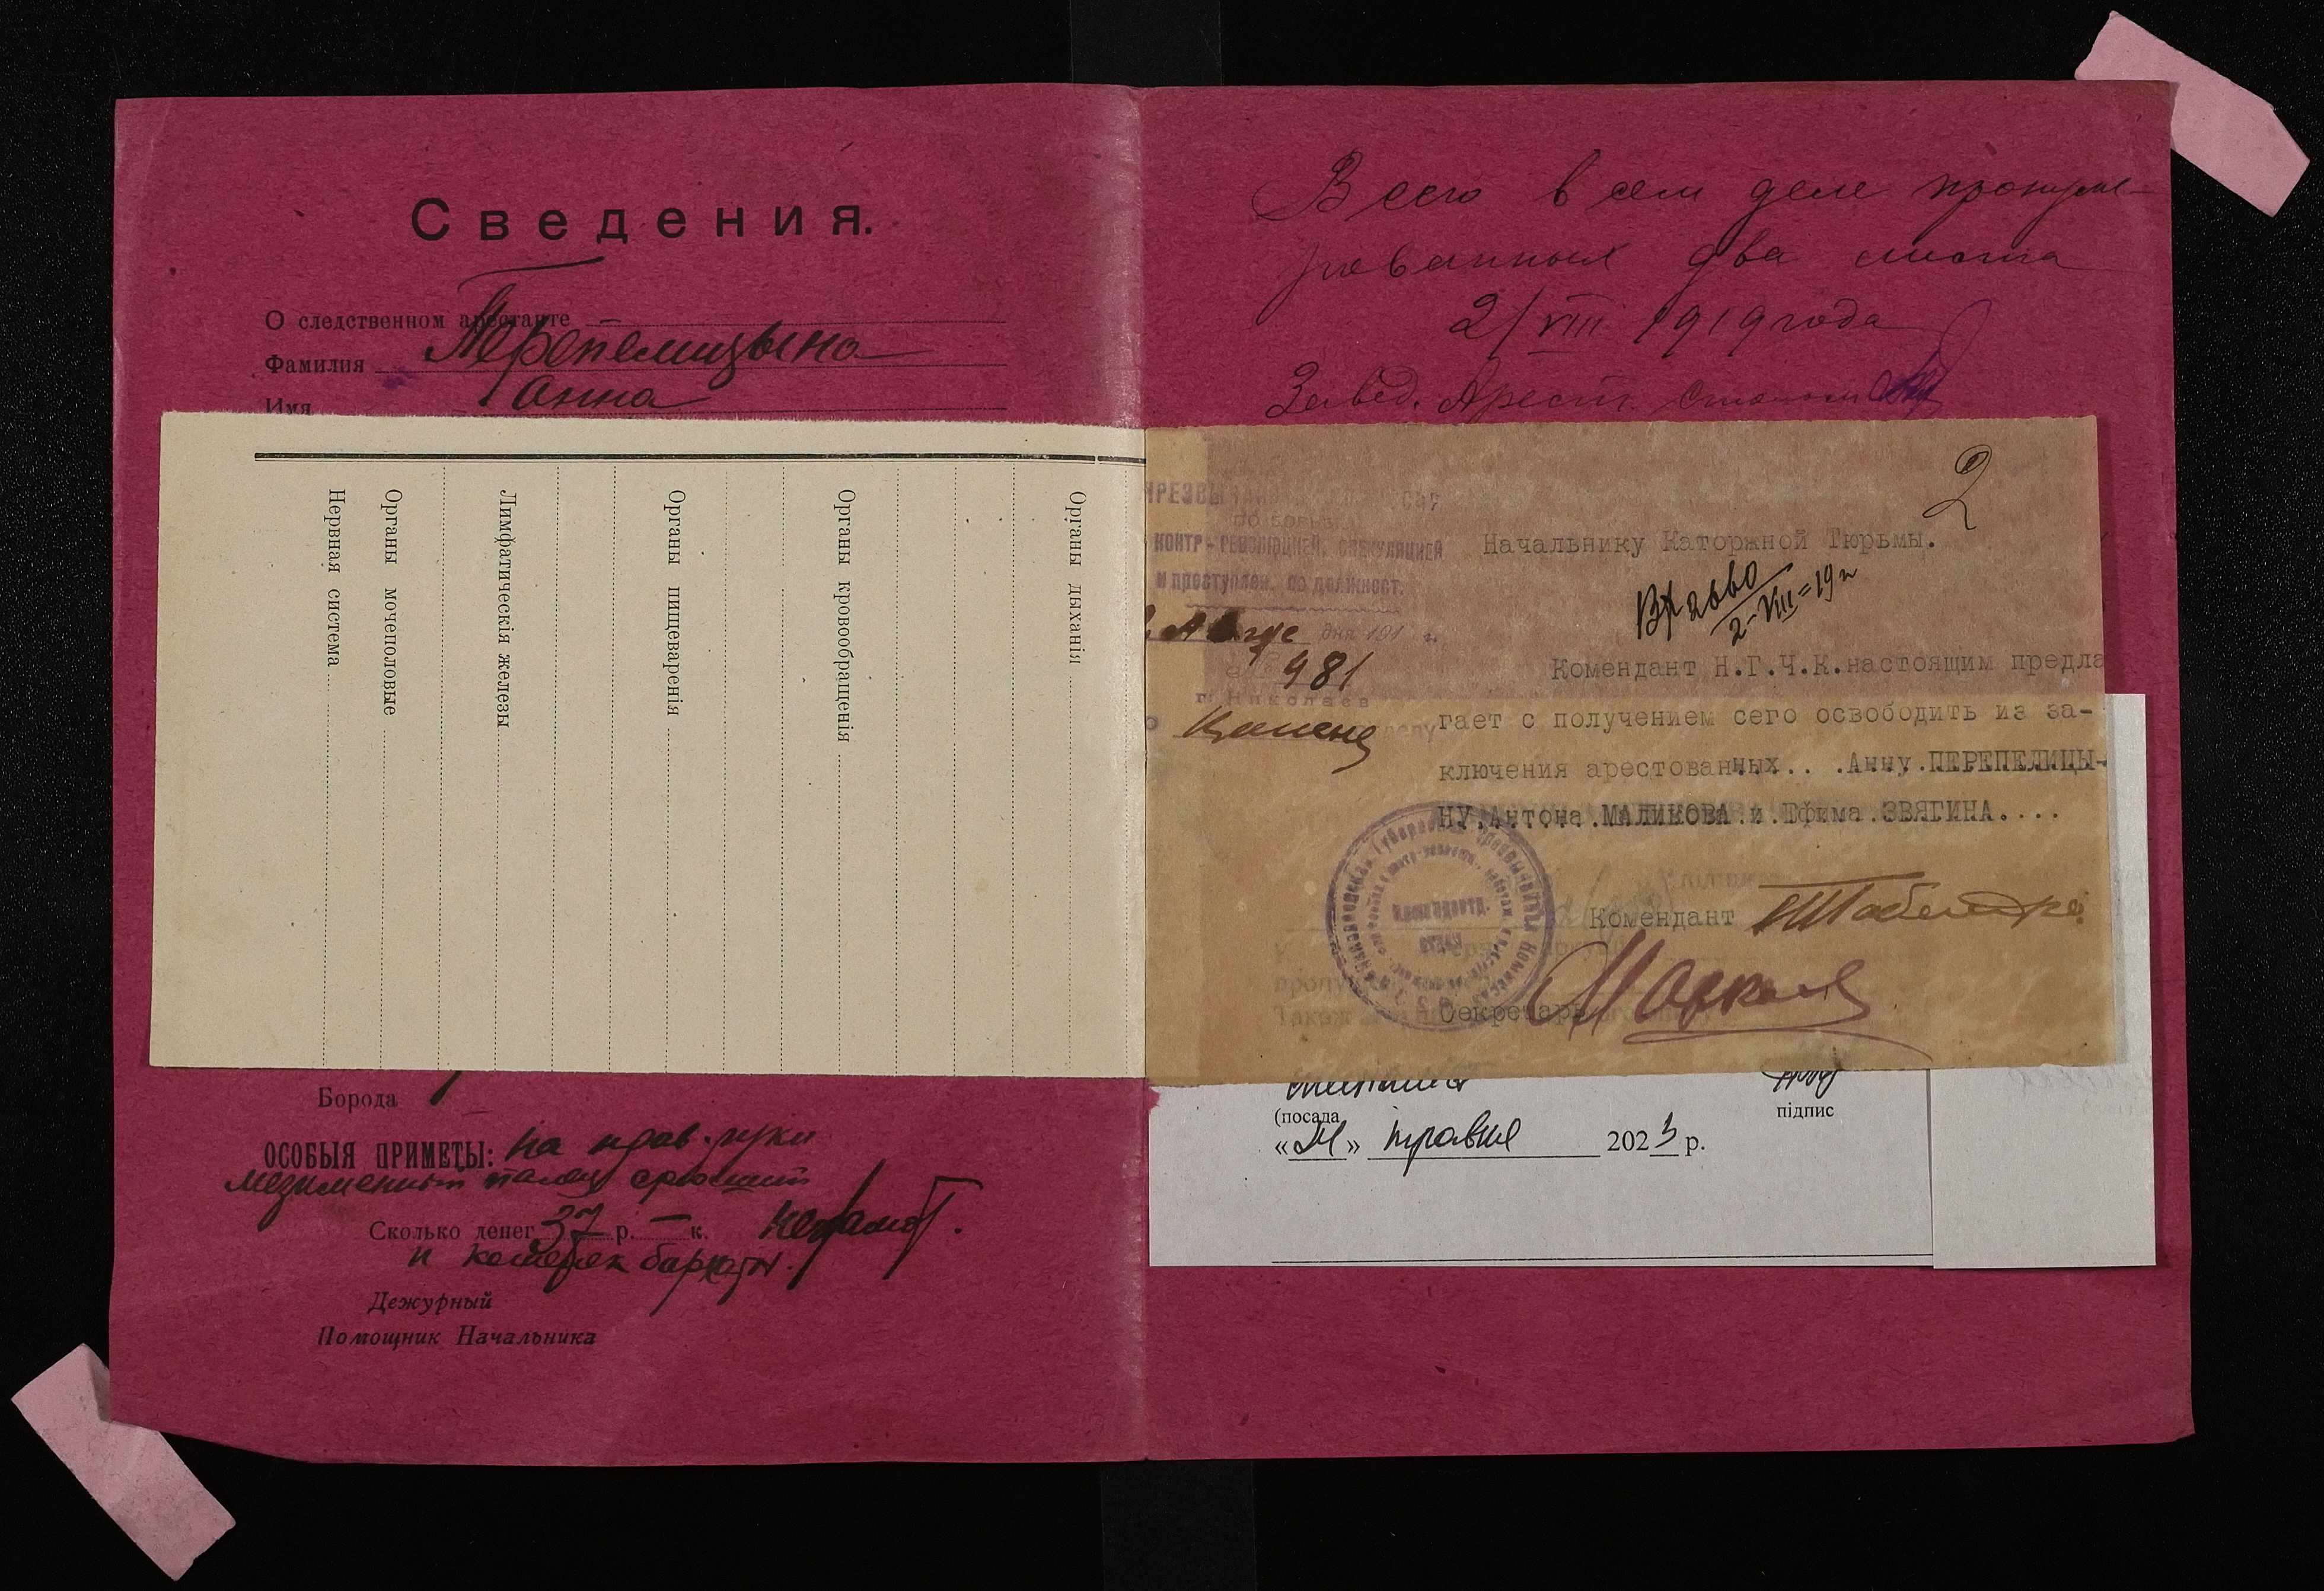 Сведения.
О следственном арестанте
Фамилия Перепелицына
Имя Анна
Органы дыханія
Органы кровообращенія
Органы пищеваренія
Лимфатическія железы
Органы мочеполовые
Нервная система
Борода
ОСОБЫЯ ПРИМЕТЫ: на прав. руки
мезименит палец
Сколько денег 37 р. — к. неграмот.
и кошелек бархатн.
Дежурный
Помощник Начальника
Всего в сем деле пронуме-
рованных два листа
2/VIII 1919 года
Завед. Арест. столом
2
ПО БОРЬБ
КОНТР-РЕВОЛЮЦИЕЙ, СПЕКУЛЯЦИЕЙ
и преступлен. по должност.
Авгус дня 191 г.
981
г. Николаев
Начальнику Каторжной Тюрьмы.
2-VIII=19 г
Комендант Н.Г.Ч.К. настоящим предла
гает с получением сего освободить из за-
ключения арестованных.. .Анну.ПЕРЕПЕЛИЦЫ-
НУ,Антона.МАЛИКОВА.и.Ефима.ЗВЯГИНА....
Комендант
Секретарь
(посада
підпис
« » травня 2023 р.